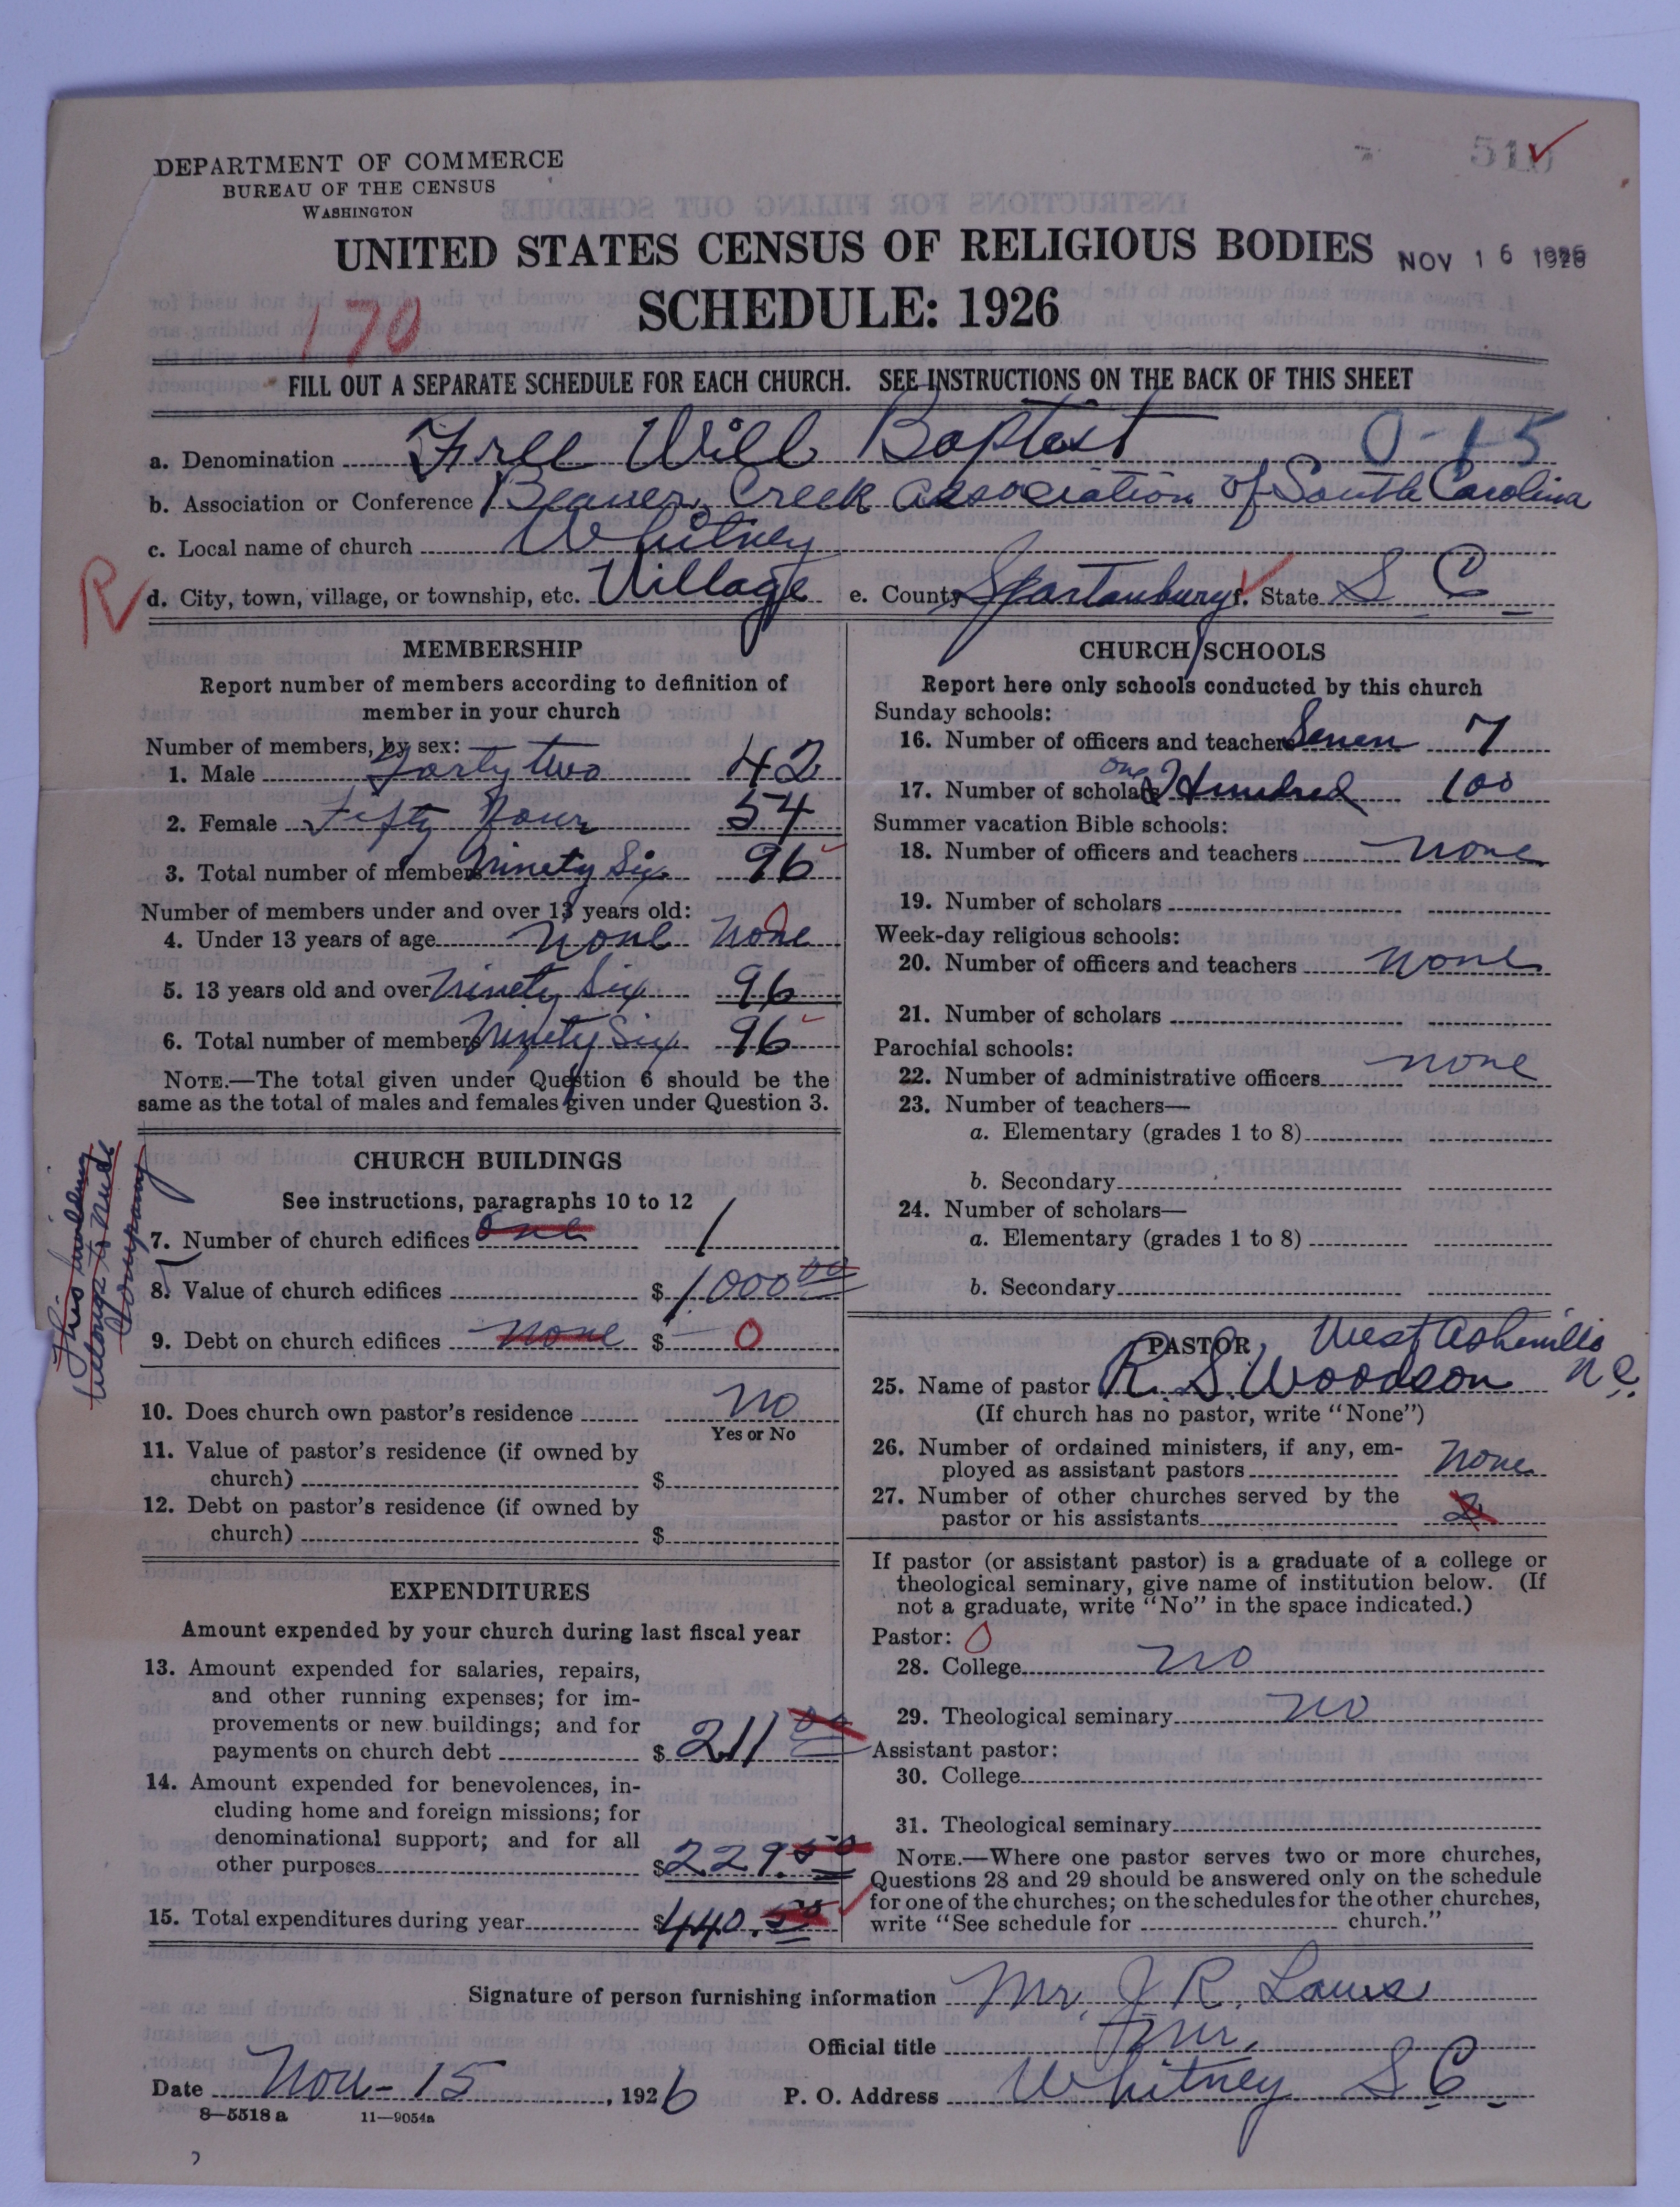 DEPARTMENT OF COMMERCE
BUREAU OF THE CENSUS
WASHINGTON
UNITED STATES CENSUS OF RELIGIOUS BODIES
NOV 16 1926
SCHEDULE: 1926
170
FILL OUT A SEPARATE SCHEDULE FOR EACH CHURCH. SEE INSTRUCTIONS ON THE BACK OF THIS SHEET
a. Denomination Free Will Baptist 0-15
b. Association or Conference Beaver Creek Association of South Carolina
c. Local name of church Whitney
R d. City, town, village, or township, etc. Village e. County Spartanburg f. State S C
MEMBERSHIP
Report number of members according to definition of
member in your church
Number of members, by sex:
1. Male Forty two 42
2. Female Fifty Four 54
3. Total number of members Ninety Six 96
Number of members under and over 13 years old:
4. Under 13 years of age None None
5. 13 years old and over Ninety Six 96
6. Total number of members Ninety Six 96
NOTE.—The total given under Question 6 should be the
same as the total of males and females given under Question 3.
CHURCH BUILDINGS
See instructions, paragraphs 10 to 12
7. Number of church edifices one 1
8. Value of church edifices $ 1000 00
9. Debt on church edifices none $ 0
This building
belongs to
Company
10. Does church own pastor's residence No
Yes or No
11. Value of pastor's residence (if owned by
church) $
12. Debt on pastor's residence (if owned by
church) $
EXPENDITURES
Amount expended by your church during last fiscal year
13. Amount expended for salaries, repairs,
and other running expenses; for im-
provements or new buildings; and for
payments on church debt $ 211 00
14. Amount expended for benevolences, in-
cluding home and foreign missions; for
denominational support; and for all
other purposes $ 229.50
15. Total expenditures during year $ 440.50
CHURCH SCHOOLS
Report here only schools conducted by this church
Sunday schools:
16. Number of officers and teachers Seven 7
17. Number of scholars one Hundred 100
Summer vacation Bible schools:
18. Number of officers and teachers none
19. Number of scholars
Week-day religious schools:
20. Number of officers and teachers None
21. Number of scholars
Parochial schools:
22. Number of administrative officers none
23. Number of teachers—
a. Elementary (grades 1 to 8)
b. Secondary
24. Number of scholars—
a. Elementary (grades 1 to 8)
b. Secondary
PASTOR West Asheville
25. Name of pastor R. S. Woodson N C.
(If church has no pastor, write "None")
26. Number of ordained ministers, if any, em-
ployed as assistant pastors None
27. Number of other churches served by the
pastor or his assistants 2
If pastor (or assistant pastor) is a graduate of a college or
theological seminary, give name of institution below. (If
not a graduate, write "No" in the space indicated.)
Pastor: 0
28. College no
29. Theological seminary no
Assistant pastor:
30. College
31. Theological seminary
NOTE.—Where one pastor serves two or more churches,
Questions 28 and 29 should be answered only on the schedule
for one of the churches; on the schedules for the other churches,
write "See schedule for church."
Signature of person furnishing information Mr. J R. Laws
Official title Mr.
Date Nov - 15, 1926 P. O. Address Whitney S C
8—5518 a 11—9054a